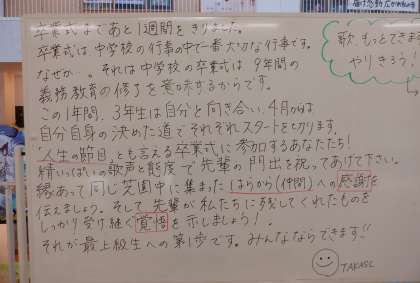 卒業式まであと1週間をきりました。
卒業式は中学校の行事の中で一番大切な行事です。
なぜか…。それは中学校の卒業式は9年間の
義務教育の修了を意味するからです。
この1年間、3年生は自分と向き合い、4月からは
自分自身の決めた道でそれぞれスタートを切ります。
「人生の節目」とも言える卒業式に参加するあなたたち!
精いっぱいの歌声と態度で先輩の門出を祝ってあげて下さい。
縁あって同じ芝園中に集まったはらから(仲間)への感謝を
伝えましょう。そして先輩が私たちに残してくれたものを
しっかり受け継ぐ覚悟を示しましょう!
それが最上級生への第1歩です。みんなならできます!!
TAKASE
歌、もっとできます
やりきろう!